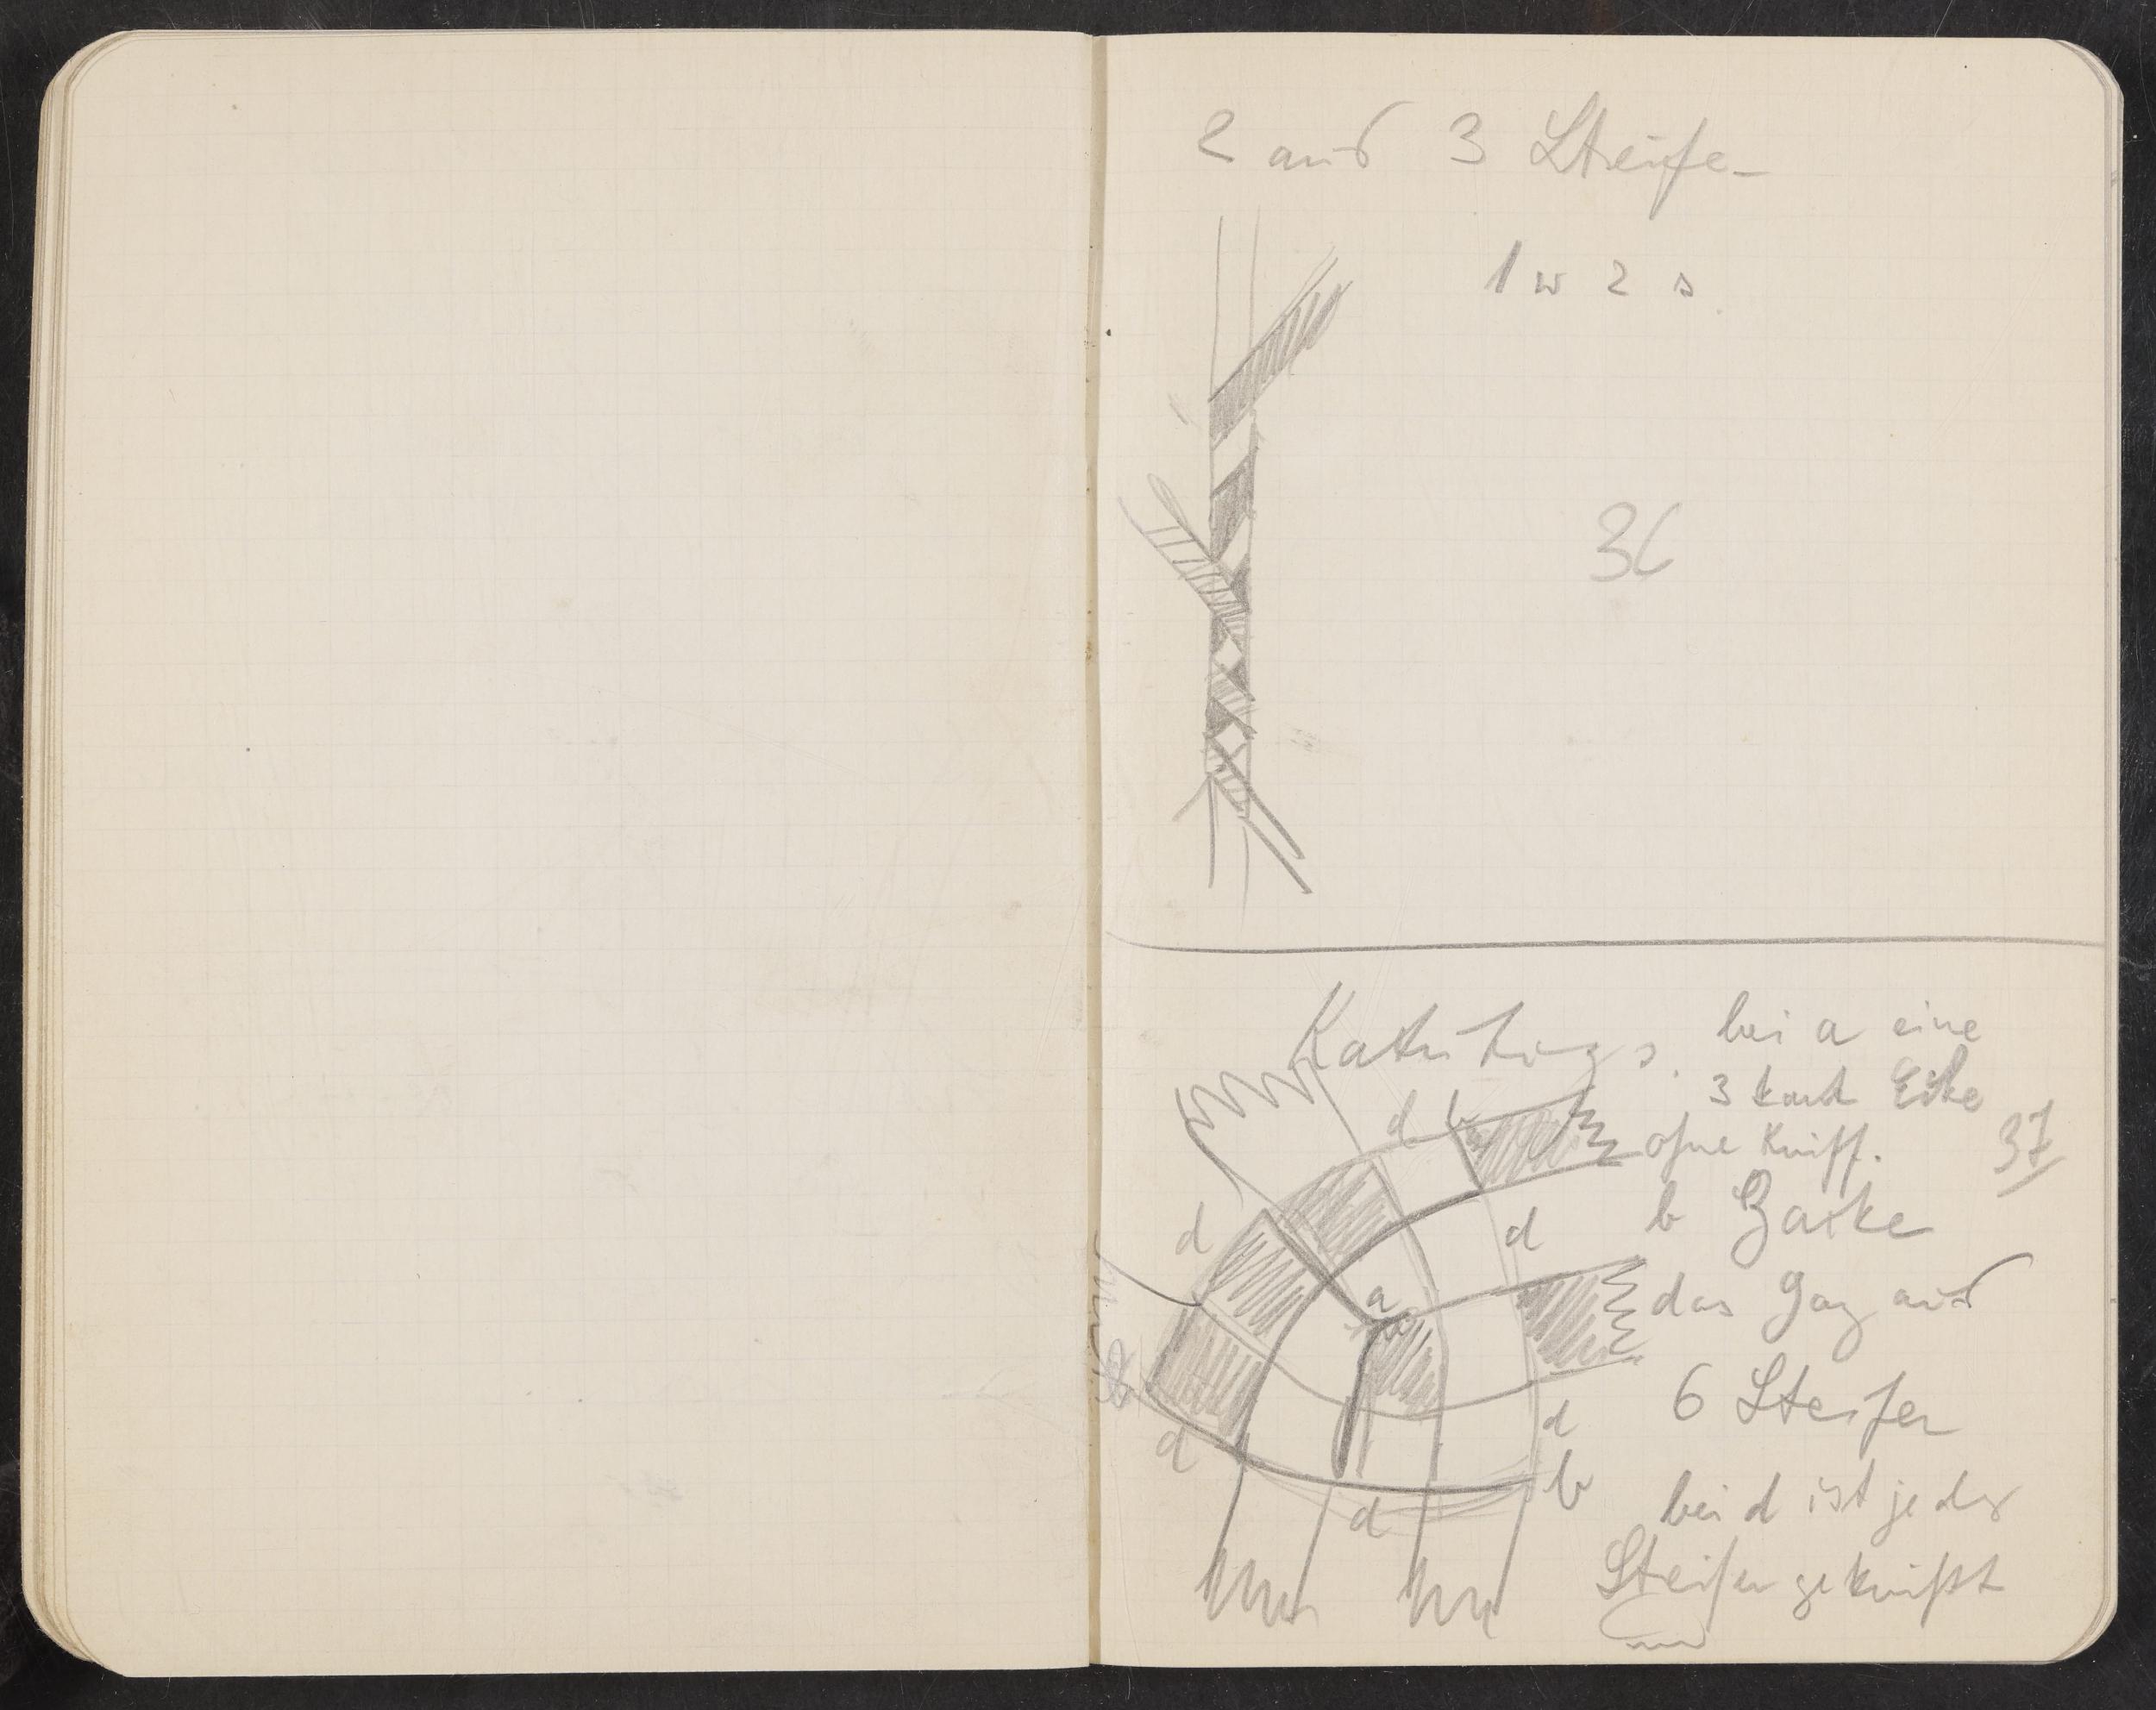 2 aus 3 Streife
1 w 2 s
36
bei a eine
3 kant Ecke
ohne Kniff.
37
b Zacke
das Ganz aus
6 Streifen
bei d ist jeder
Streifen geknifft
d b
d
d
a
d
d
b
d